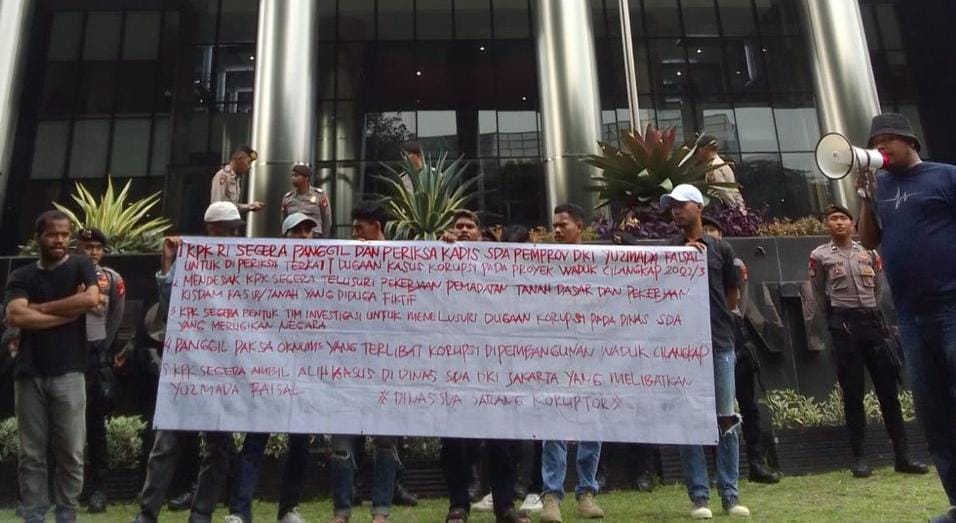 1 KPK RI SEGERA PANGGIL DAN PERIKSA KADIS SDA PEMPROV DKI YUZMADA FAISAL
UNTUK DI PERIKSA TERKAIT DUGAAN KASUS KORUPSI PADA PROYEK WADUK CILANGKAP 2002/3
2 MENDESAK KPK SEGERA TELUSURI PEKERJAAN PEMADATAN TANAH DASAR DAN PEKERJAAN
KISDAM PASIR/TANAH YANG DIDUGA FIKTIF
3 KPK SEGERA BENTUK TIM INVESTIGASI UNTUK MENELUSURI DUGAAN KORUPSI PADA DINAS SDA
YANG MERUGIKAN NEGARA
4 PANGGIL PAKSA OKNUMS YANG TERLIBAT KORUPSI DIPEMBANGUNAN WADUK CILANGKAP
5 KPK SEGERA AMBIL ALIH KASUS DI DINAS SDA DKI JAKARTA YANG MELIBATKAN
YUZMADA FAISAL ※ DINAS SDA SARANG KORUPTOR ※